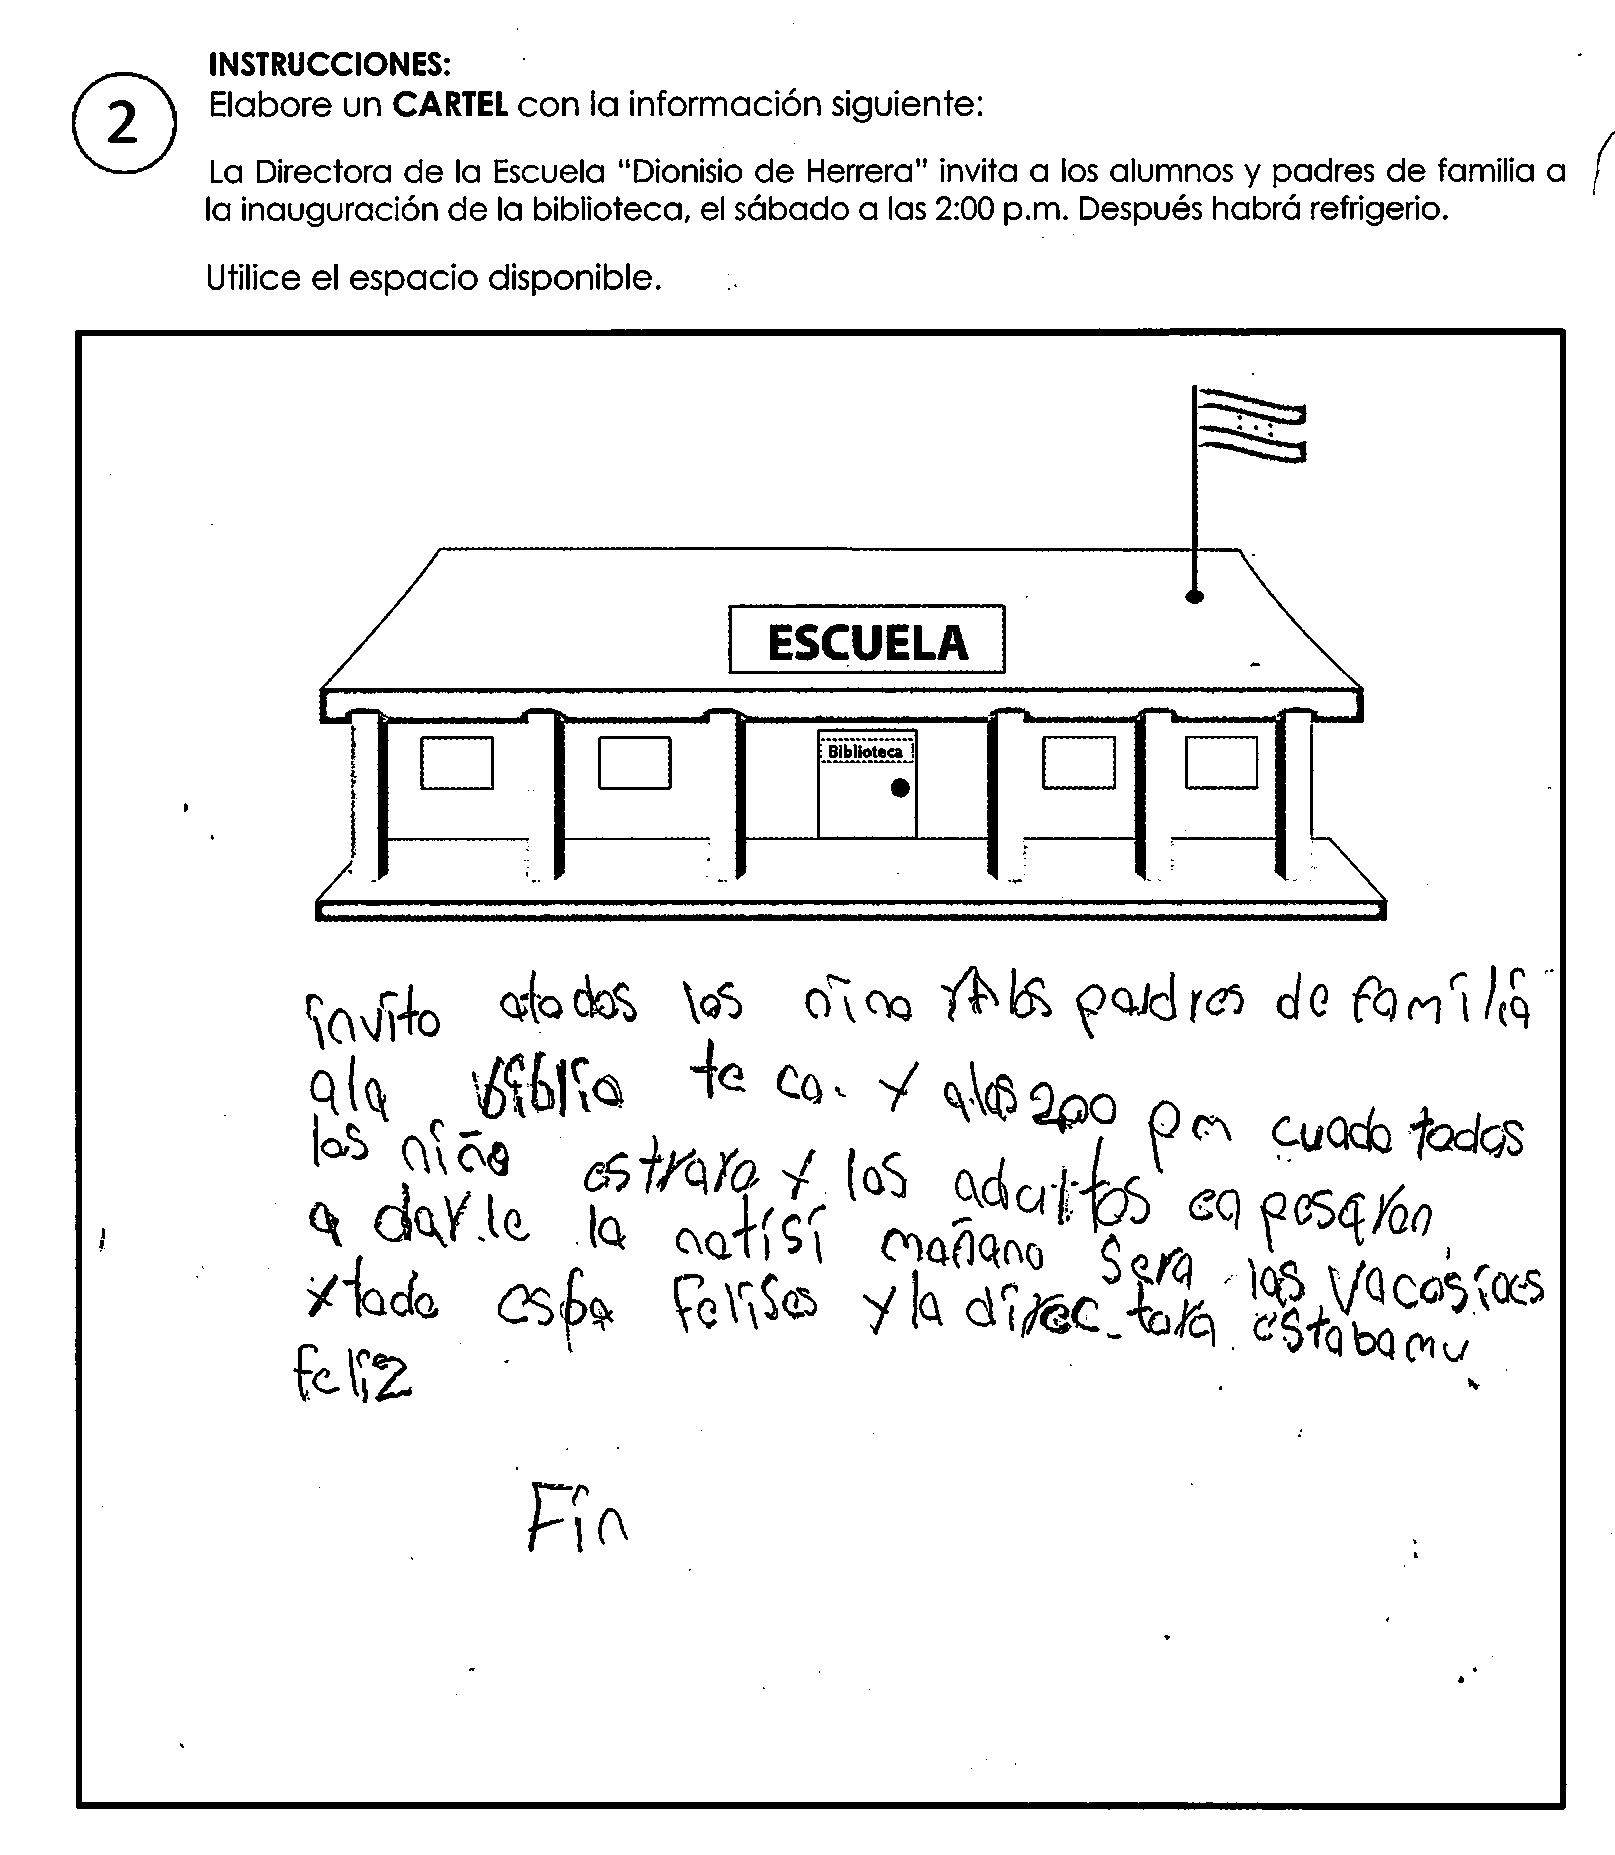 INSTRUCCIONES:
2
Elabore un CARTEL con la información siguiente:
La Directora de la Escuela "Dionisio de Herrera" invita a los alumnos y padres de familia a
la inauguración de la biblioteca, el sábado a las 2:00 p.m. Después habrá refrigerio.
Utilice el espacio disponible.
ESCUELA
Biblioteca
invito atodos los nino YA los padres de familia
ala biblio te ca. y alas 200 pm cuado todos
los niño estraro y los adultos enpesaron
a dar.le la notisi mañano sera las vacasioes
y todo felises y la direc_tora estabamu
feliz
Fin